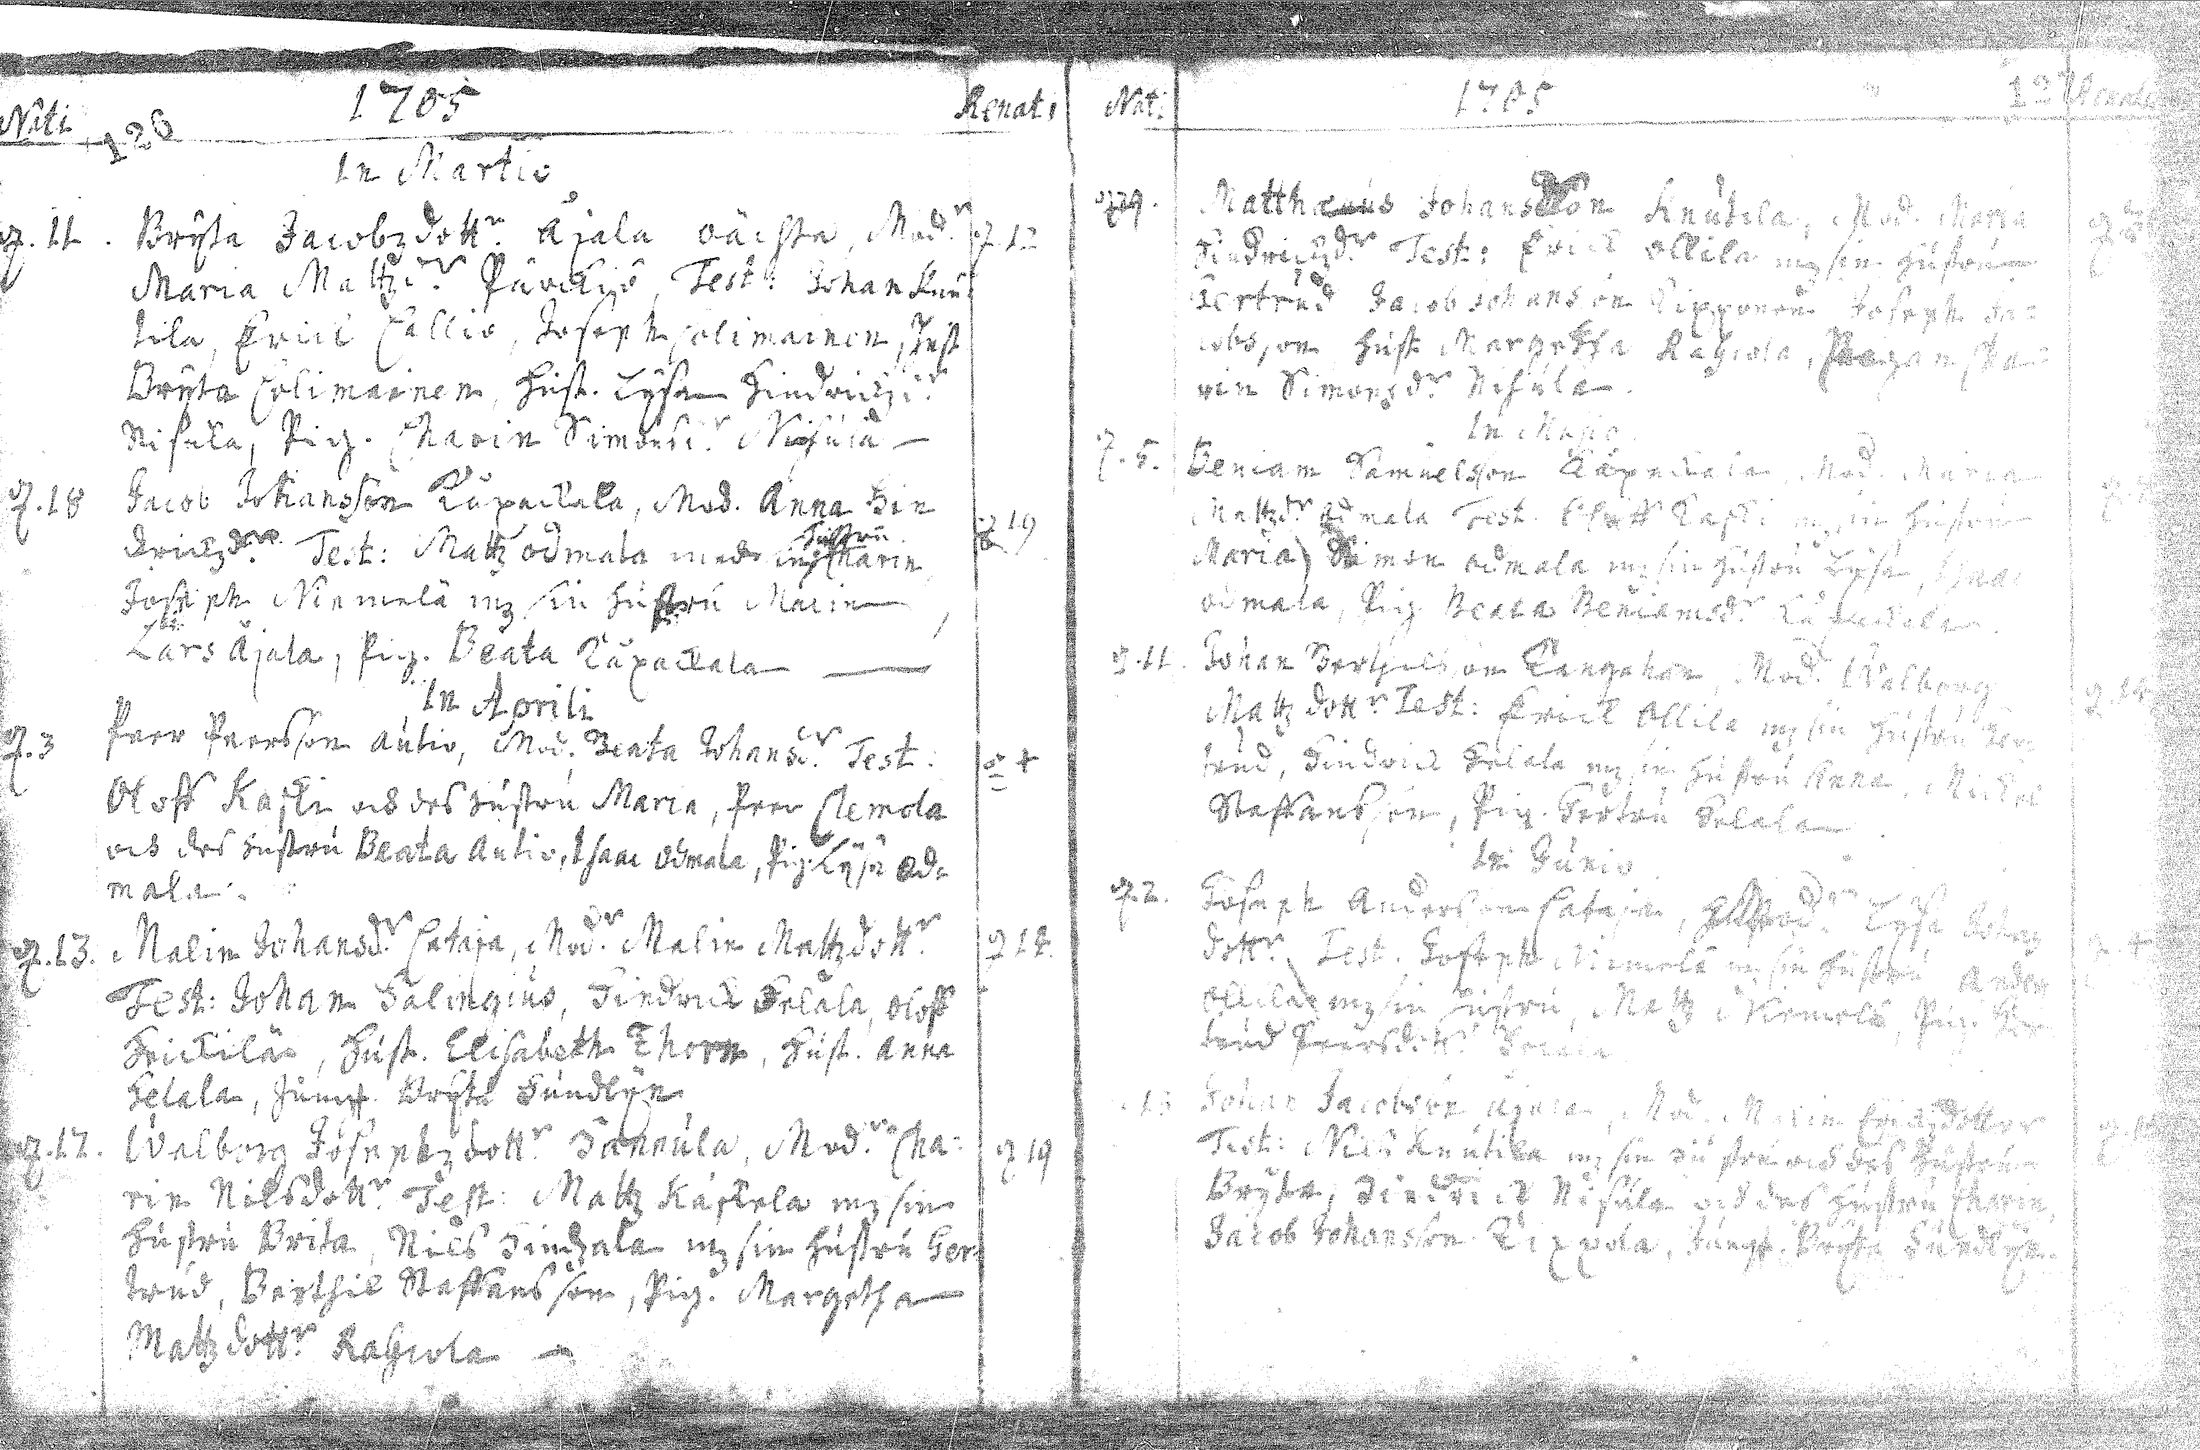 Nati 126 1705 Renati
In Martio
11. Brÿta Jacobzdottr. Äjala Mod.r 12
Maria Mattzdr. Test: Johan Knu:
tila, Erich Callio, Joseph Colimainen, Hust
Brÿta Colimainen, Hust. Lÿsa Hindrichzdr
Nisula, Pig. Charin Simonsdr. Nisula
18 Jacob Johansson Käpackala, Mod. Anna Hin 19
drichzdr. Test: Mattz Odmala med sin Hustru Charin
Joseph Niemelä mz sin hustru Malin
Lars Äjala, Pig. Beata Käpackala
In Aprili
3 Peer Peersson Autio, Mod. Beata Johansdr. Test: 4
Oloff Kaski och des hustru Maria, Peer Clemola
och des hustru Beata Autio, Isaac Odmala, Pig. Lÿsa Od=
mala.
13. Malin Johansdr. Cataja, Modr. Malin Mattzdottr 14.
Test: Johan Salingius, Hindrich Selala, Oloff
Hust. Elisabeth Thorn, Hust. Anna
Selala, Jumf. Brÿta Sundlÿn
17. Walborg Josephzdottr Mod. Cha: 19
rin Nilsdottr. Test: Mattz mz sin
hustru Brita, Nils mz sin hustru Ger
trud, Berthil Staffansson, Pig. Margetha
Mattzdottr Rahiola
Nat: 1705 127 Renati
29. Matthaeus Johansson Knutila, Mod. Maria
Hindrichzdr. Test: Erich Ollila mz sin hustru
Gertrud Jacob Johansson Kipponen Joseph Ja=
cobsson hust Margetha Rahiola, Cha=
rin Simonsdr Nisula.
In Majo
5. Beniam Samuelsson Käpackala, Mod. Maria
Mattzdr Odmala Test. Kaski mz sin hustru
Maria, Simon Odmala mz sin hustru Lÿsa, Isaac
Odmala, Pig Beata Beniamsdr Käpackala.
11. Johan Kangahan, Mod. Walborg 14
Mattzdottr Test: Erich Ollila mz sin hustru Ger=
trud, Hindrich Selala mz sin hustru Anna, Michel
Staffansson, Pig. Gertru Selala
In Junio
2. Joseph Andersson Cataja, Mod. Lÿsa Johans
dottr. Test. Joseph Niemelä mz sin hustru Anders
Ollila mz sin hustru, Mattz Niemelä, Pig. Ger
trud Peersdottr
15 Johan Jacobsson Äjala, Mod. Malin Erichzdotter
Test: Nils Knutila mz sin hustru och des hustru
Brÿta, Hindrich Nisula och des hustru Charin,
Jacob Johansson Kippola, Jumf. Brÿta Sundlÿn.